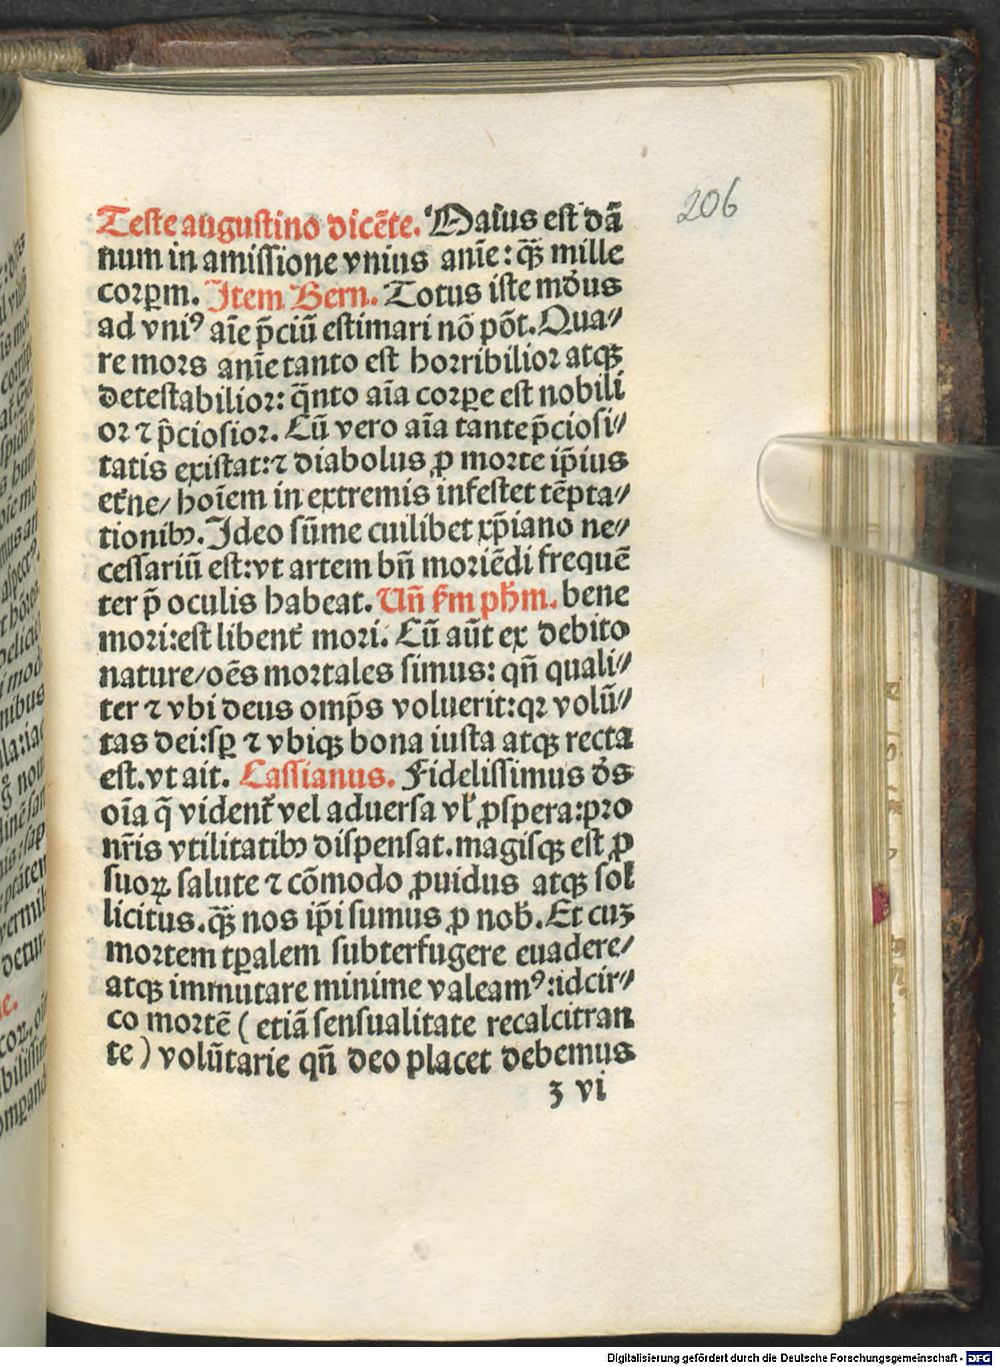 206
Teste augustino dicēte. Maius est dā
num in amissione vnius anīe: q̄ꝫ mille
corꝑm. Item Bern. Totus iste mōus
ad vniꝰ aīe p̄ciū estimari nō pōt. Qua⸗
re mors anīe tanto est horribilior atqꝫ
detestabilior: q̄nto aīa corꝑe est nobili
or ⁊ p̄ciosior. Cū vero aīa tante p̄ciosi⸗
tatis existat: ⁊ diabolus ꝓ morte ip̄ius
et̄ne/ hoīem in extremis infestet tēpta⸗
tionibꝫ. Ideo sūme cuilibet xp̄iano ne⸗
cessariū est: vt artem bn̄ moriēdi frequē
ter p̄ oculis habeat. Un̄ ẜm ph̄m. bene
mori: est libent̄ mori. Cū aūt ex debito
nature/ oēs mortales simus: qn̄ quali⸗
ter ⁊ vbi deus omp̄s voluerit: qꝛ volū⸗
tas dei: sꝑ ⁊ vbiqꝫ bona iusta atqꝫ recta
est. vt ait. Cassianus. Fidelissimus d̄s
oīa q̄ vident̄ vel aduersa vl̄ ꝓspera: pro
nr̄is vtilitatibꝫ dispensat. magisqꝫ est ꝓ
suoꝝ salute ⁊ cōmodo ꝓuidus atqꝫ sol
licitus. q̄ꝫ nos ip̄i sumus ꝓ nob̄. Et cuꝫ
mortem tꝑalem subterfugere euadere/
atqꝫ immutare minime valeamꝰ: idcir⸗
co mortē ( etiā sensualitate recalcitran
te ) volūtarie qn̄ deo placet debemus
ʒ vi
Digitalisierung gefördert durch die Deutsche Forschungsgemeinschaft - DFG